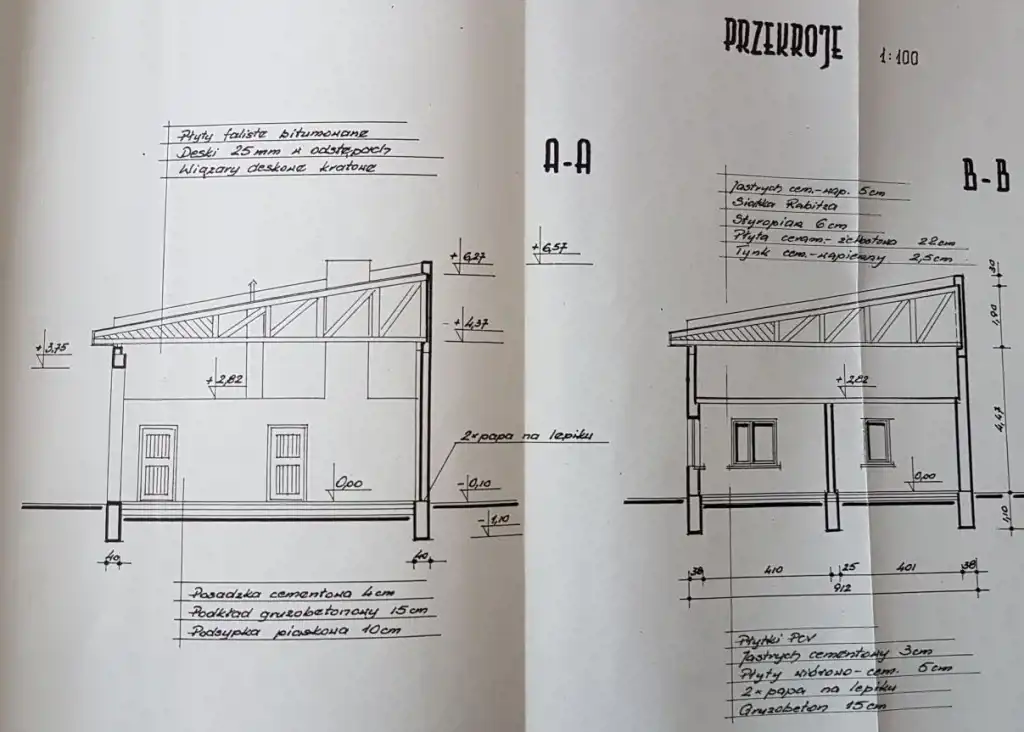 PRZEKROJE 1:100
A-A
B-B
Płyty faliste bitumowane
Deski 25mm w odstępach
Wiązary deskowe kratowe
Jastrych cem.-wap. 5cm
Siatka Rabitza
Styropian 6cm
Płyta ceram.- żelbetowa 22cm
Tynk cem.-wapienny 2,5cm
+6,27
+6,57
+4,37
+3,75
+2,82
+2,82
2×papa na lepiku
0,00
-0,10
-1,10
0,00
30
1,90
4,47
1,10
40
40
38
410
25
401
38
912
Posadzka cementowa 4cm
Podkład gruzobetonowy 15cm
Podsypka piaskowa 10cm
Płytki PCV
Jastrych cementowy 3cm
Płyty wiórowo-cem. 5cm
2×papa na lepiku
Gruzobeton 15cm